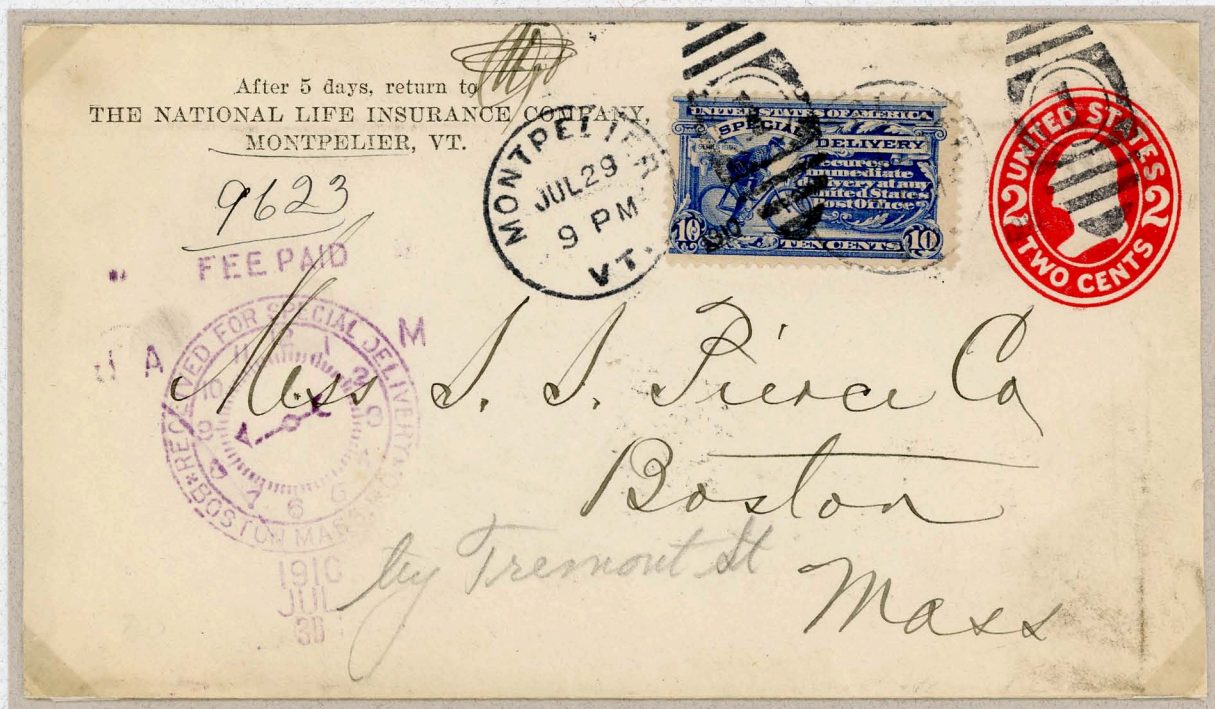 After 5 days, return to
THE NATIONAL LIFE INSURANCE COMPANY,
MONTPELIER, VT.
9623
MONTPELIER
JUL 29
9 PM
VT.
1910
UNITED STATES OF AMERICA
SPECIAL
DELIVERY
Secures
immediate
delivery at any
United States
Post Office
10 TEN CENTS 10
UNITED STATES
2 2
TWO CENTS
FEE PAID
A M
RECEIVED FOR SPECIAL DELIVERY
BOSTON MASS.
11 1 2 3 6 7 8 9 10
1910
JUL
30
Mess S. S. Pierce Co
Boston
Mass
try Tremont St